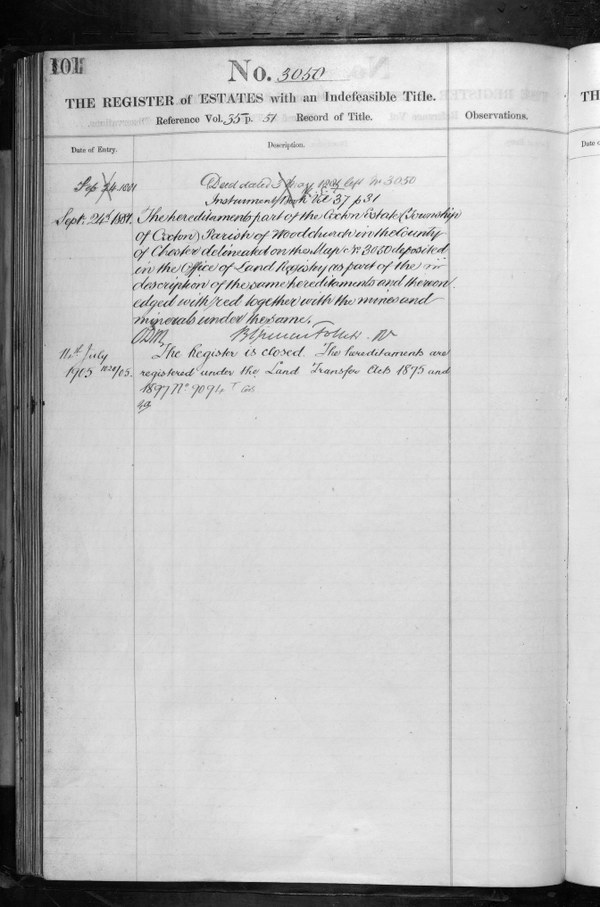 101
No. 3050
THE REGISTER of ESTATES with an Indefeasible Title.
Reference Vol. 35 p. 51 Record of Title.
Observations.
Date of Entry.
Description.
Sep 24 1881
Deed dated 3 May left No 3050
Instrument Book Vol 37 p 31
Sept. 24th 1881.
The hereditaments part of the Oxton Estate (Township
of Oxton) Parish of Woodchurch in the County
of Chester delineated on the Map No 3050 deposited
in the Office of Land Registry as part of the
description of the same hereditaments and thereon
edged with red together with the mines and
minerals under the same.
11th July
1905 /05.
The Register is closed. The hereditaments are
registered under the Land Transfer Acts 1875 and
1897 No 9094
TH
Date o